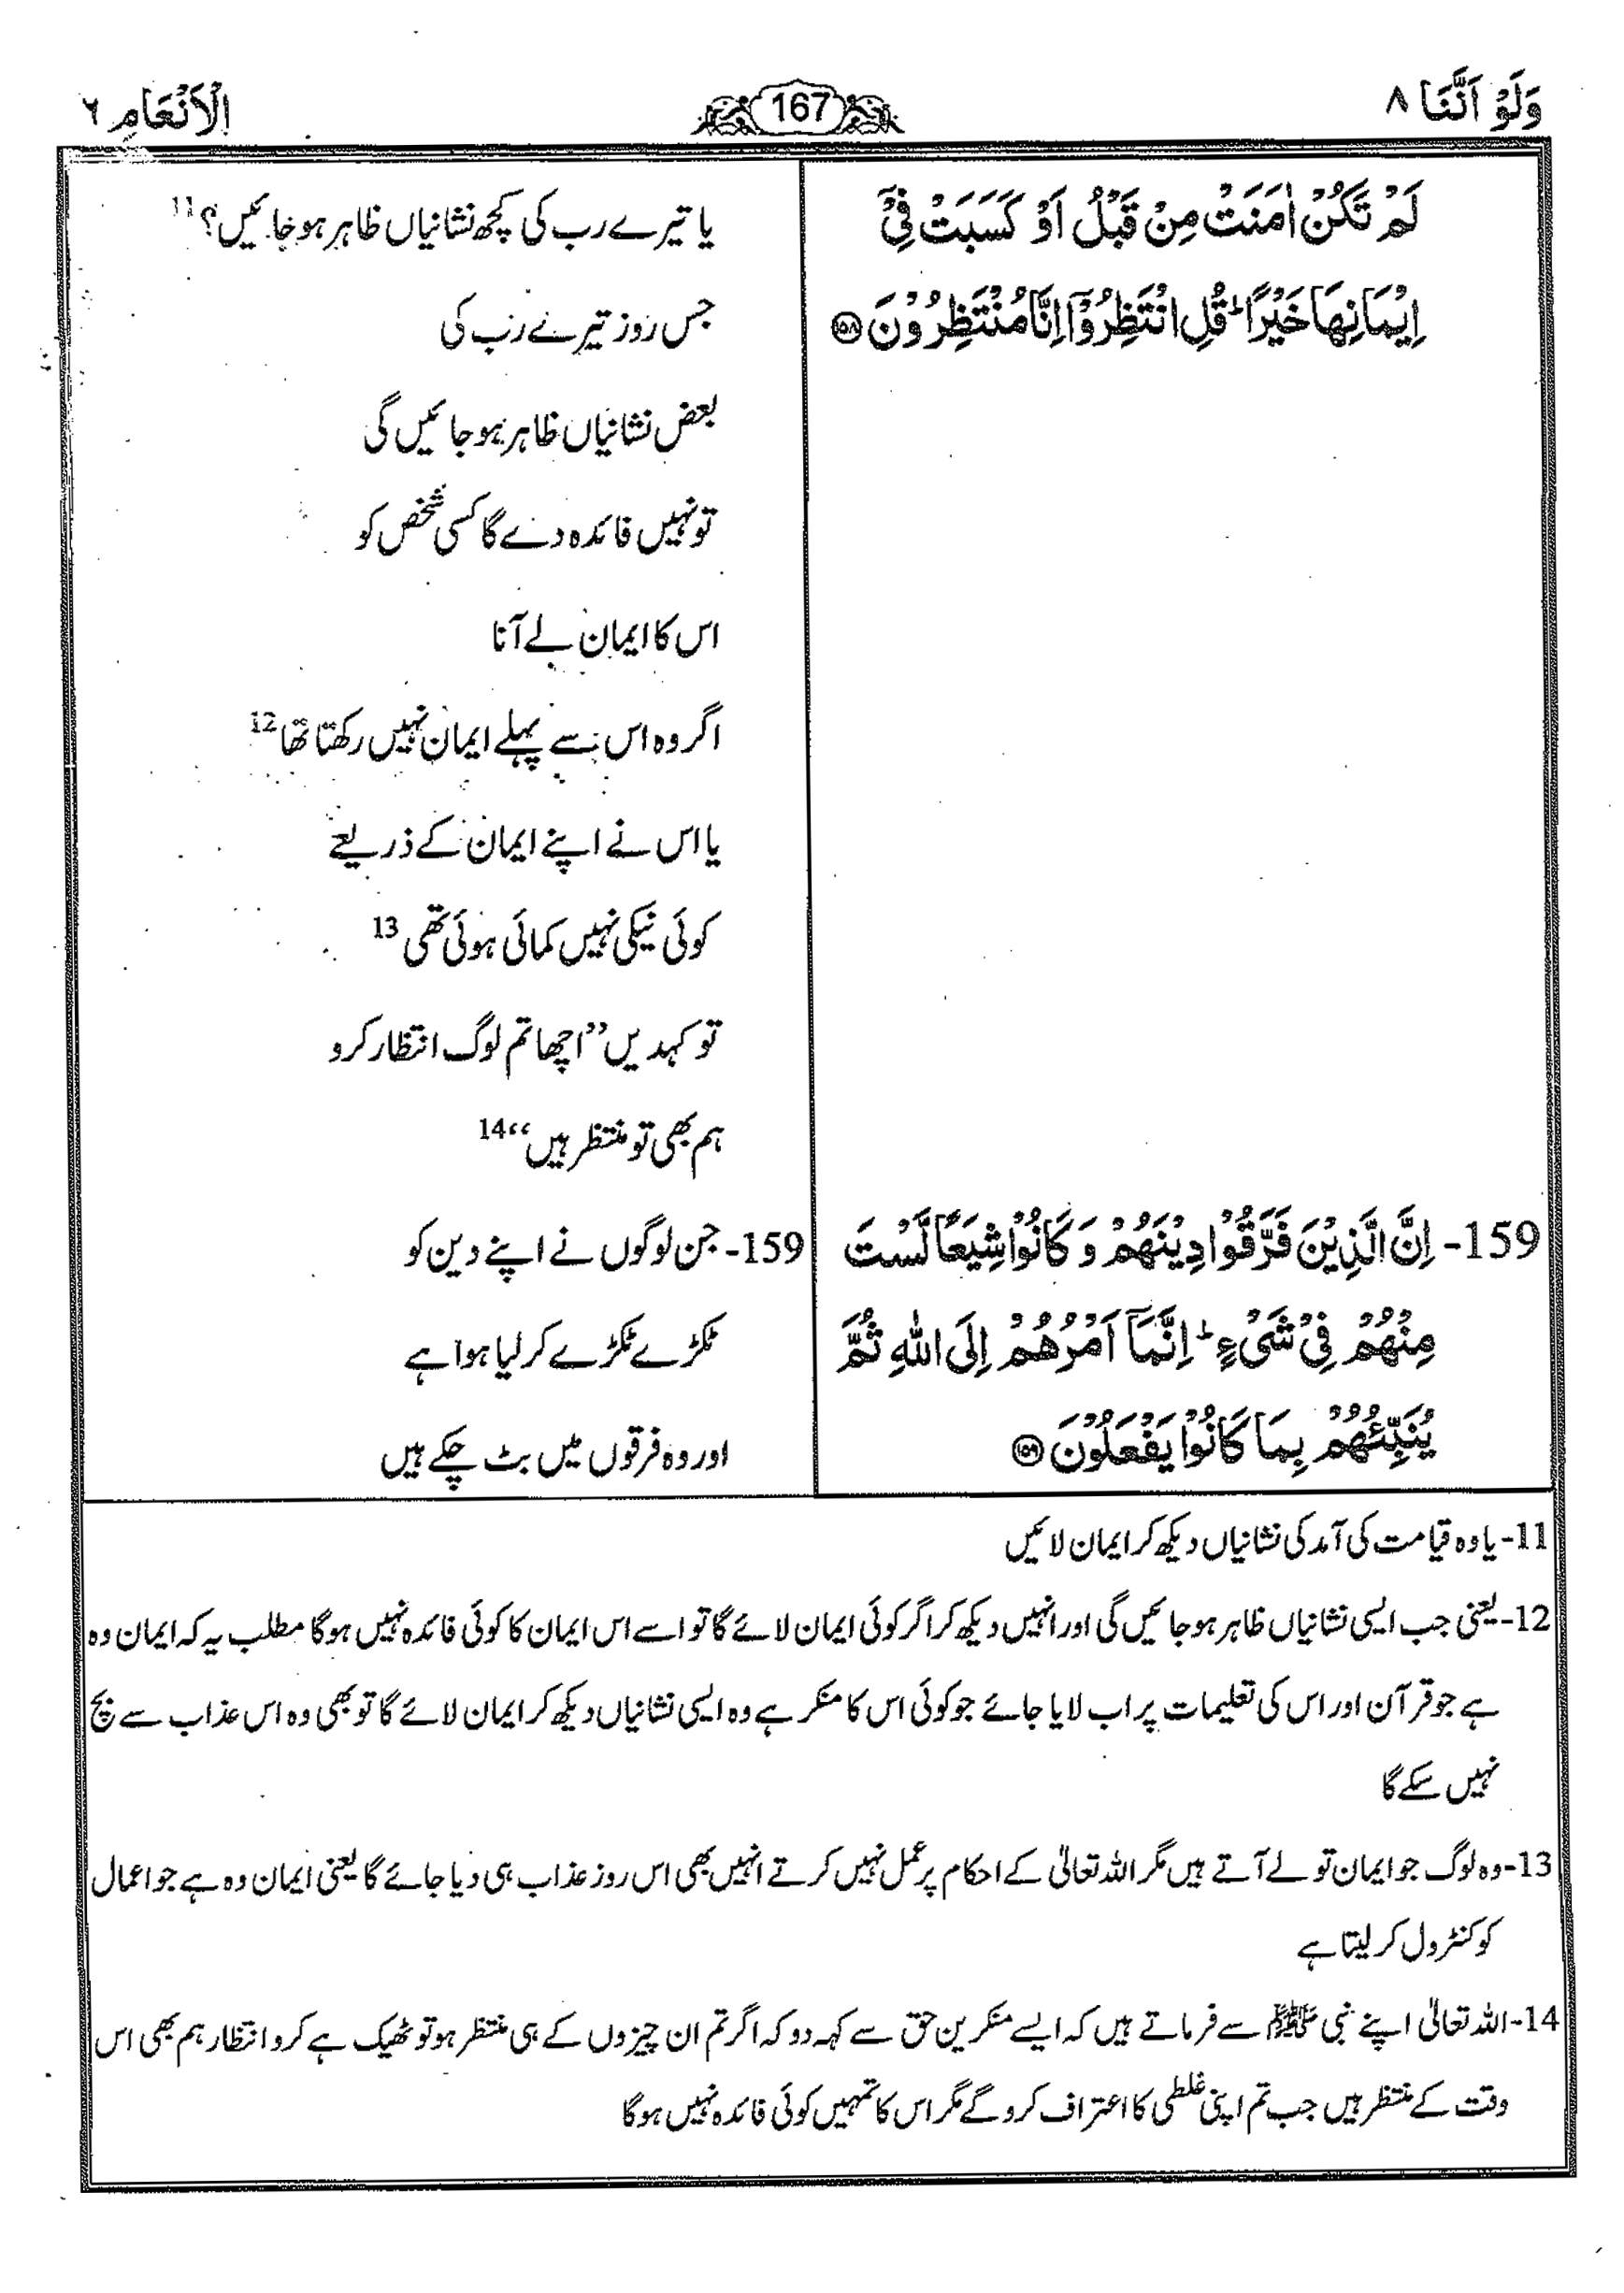 وَلَوْ اَنَّنَا ۸
167
الْاَنْعَامِ ٦
لَمْ تَكُنْ اٰمَنَتْ مِنْ قَبْلُ اَوْ كَسَبَتْ فِیْۤ
اِیْمَانِهَا خَیْرًا ؕ قُلِ انْتَظِرُوْۤا اِنَّا مُنْتَظِرُوْنَ ﴿۱۵۸﴾
یا تیرے رب کی کچھ نشانیاں ظاہر ہو جائیں؟ 11
جس روز تیرے رب کی
بعض نشانیاں ظاہر ہو جائیں گی
تو نہیں فائدہ دے گا کسی شخص کو
اس کا ایمان لے آنا
اگر وہ اس سے پہلے ایمان نہیں رکھتا تھا 12
یا اس نے اپنے ایمان کے ذریعے
کوئی نیکی نہیں کمائی ہوئی تھی 13
تو کہدیں ”اچھا تم لوگ انتظار کرو
ہم بھی تو منتظر ہیں“ 14
159- اِنَّ الَّذِیْنَ فَرَّقُوْا دِیْنَهُمْ وَ كَانُوْا شِیَعًا لَّسْتَ
مِنْهُمْ فِیْ شَیْءٍ ؕ اِنَّمَاۤ اَمْرُهُمْ اِلَی اللّٰهِ ثُمَّ
یُنَبِّئُهُمْ بِمَا كَانُوْا یَفْعَلُوْنَ ﴿۱۵۹﴾
159- جن لوگوں نے اپنے دین کو
ٹکڑے ٹکڑے کر لیا ہوا ہے
اور وہ فرقوں میں بٹ چکے ہیں
11- یا وہ قیامت کی آمد کی نشانیاں دیکھ کر ایمان لائیں
12- یعنی جب ایسی نشانیاں ظاہر ہو جائیں گی اور انہیں دیکھ کر اگر کوئی ایمان لائے گا تو اسے اس ایمان کا کوئی فائدہ نہیں ہوگا مطلب یہ کہ ایمان وہ
ہے جو قرآن اور اس کی تعلیمات پر اب لایا جائے جو کوئی اس کا منکر ہے وہ ایسی نشانیاں دیکھ کر ایمان لائے گا تو بھی وہ اس عذاب سے بچ
نہیں سکے گا
13- وہ لوگ جو ایمان تو لے آتے ہیں مگر اللہ تعالیٰ کے احکام پر عمل نہیں کرتے انہیں بھی اس روز عذاب ہی دیا جائے گا یعنی ایمان وہ ہے جو اعمال
کو کنٹرول کر لیتا ہے
14- اللہ تعالیٰ اپنے نبی ﷺ سے فرماتے ہیں کہ ایسے منکرین حق سے کہہ دو کہ اگر تم ان چیزوں کے ہی منتظر ہو تو ٹھیک ہے کرو انتظار ہم بھی اس
وقت کے منتظر ہیں جب تم اپنی غلطی کا اعتراف کرو گے مگر اس کا تمہیں کوئی فائدہ نہیں ہوگا